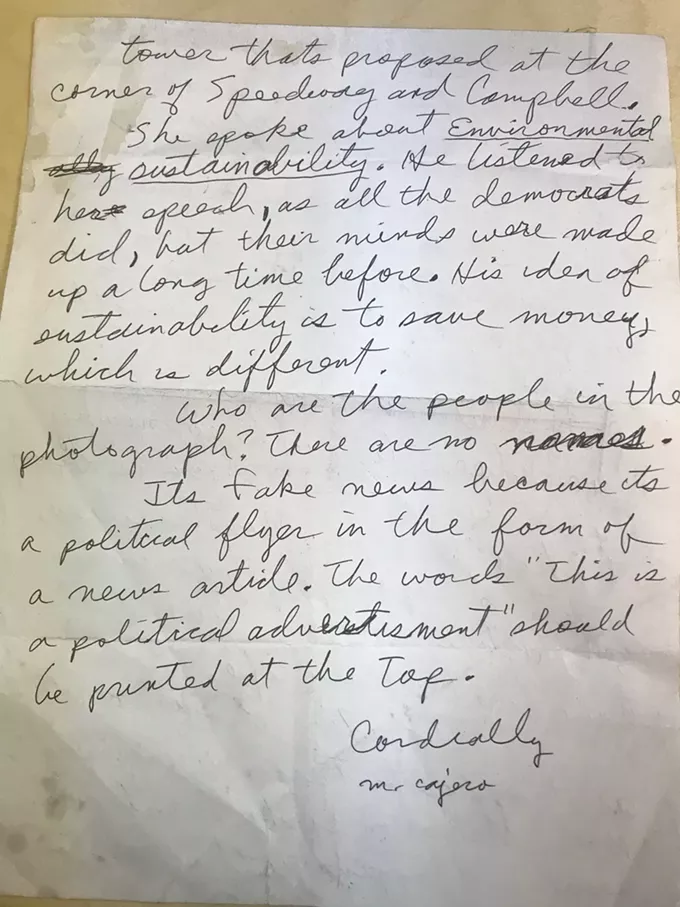 tower thats proposed at the
corner of Speedway and Campbell.
She spoke about Environmental
sustainability. He listened to
her speech, as all the democrats
did, but their minds were made
up a long time before. His idea of
sustainability is to save money,
which is different.
Who are the people in the
photograph? There are no names.
Its fake news because its
a political flyer in the form of
a news article. The words "This is
a political advertisment" should
be printed at the Top.
Cordially
mr cajero